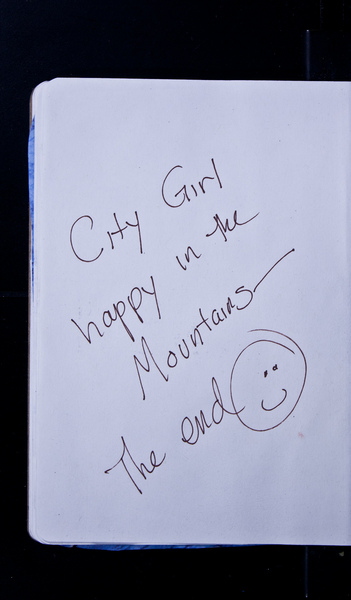 City Girl
happy in the
Mountains—
The end